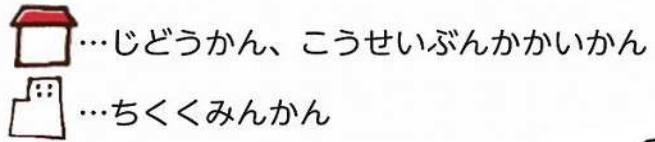 …じどうかん、こうせいぶんかかいかん
…ちくくみんかん